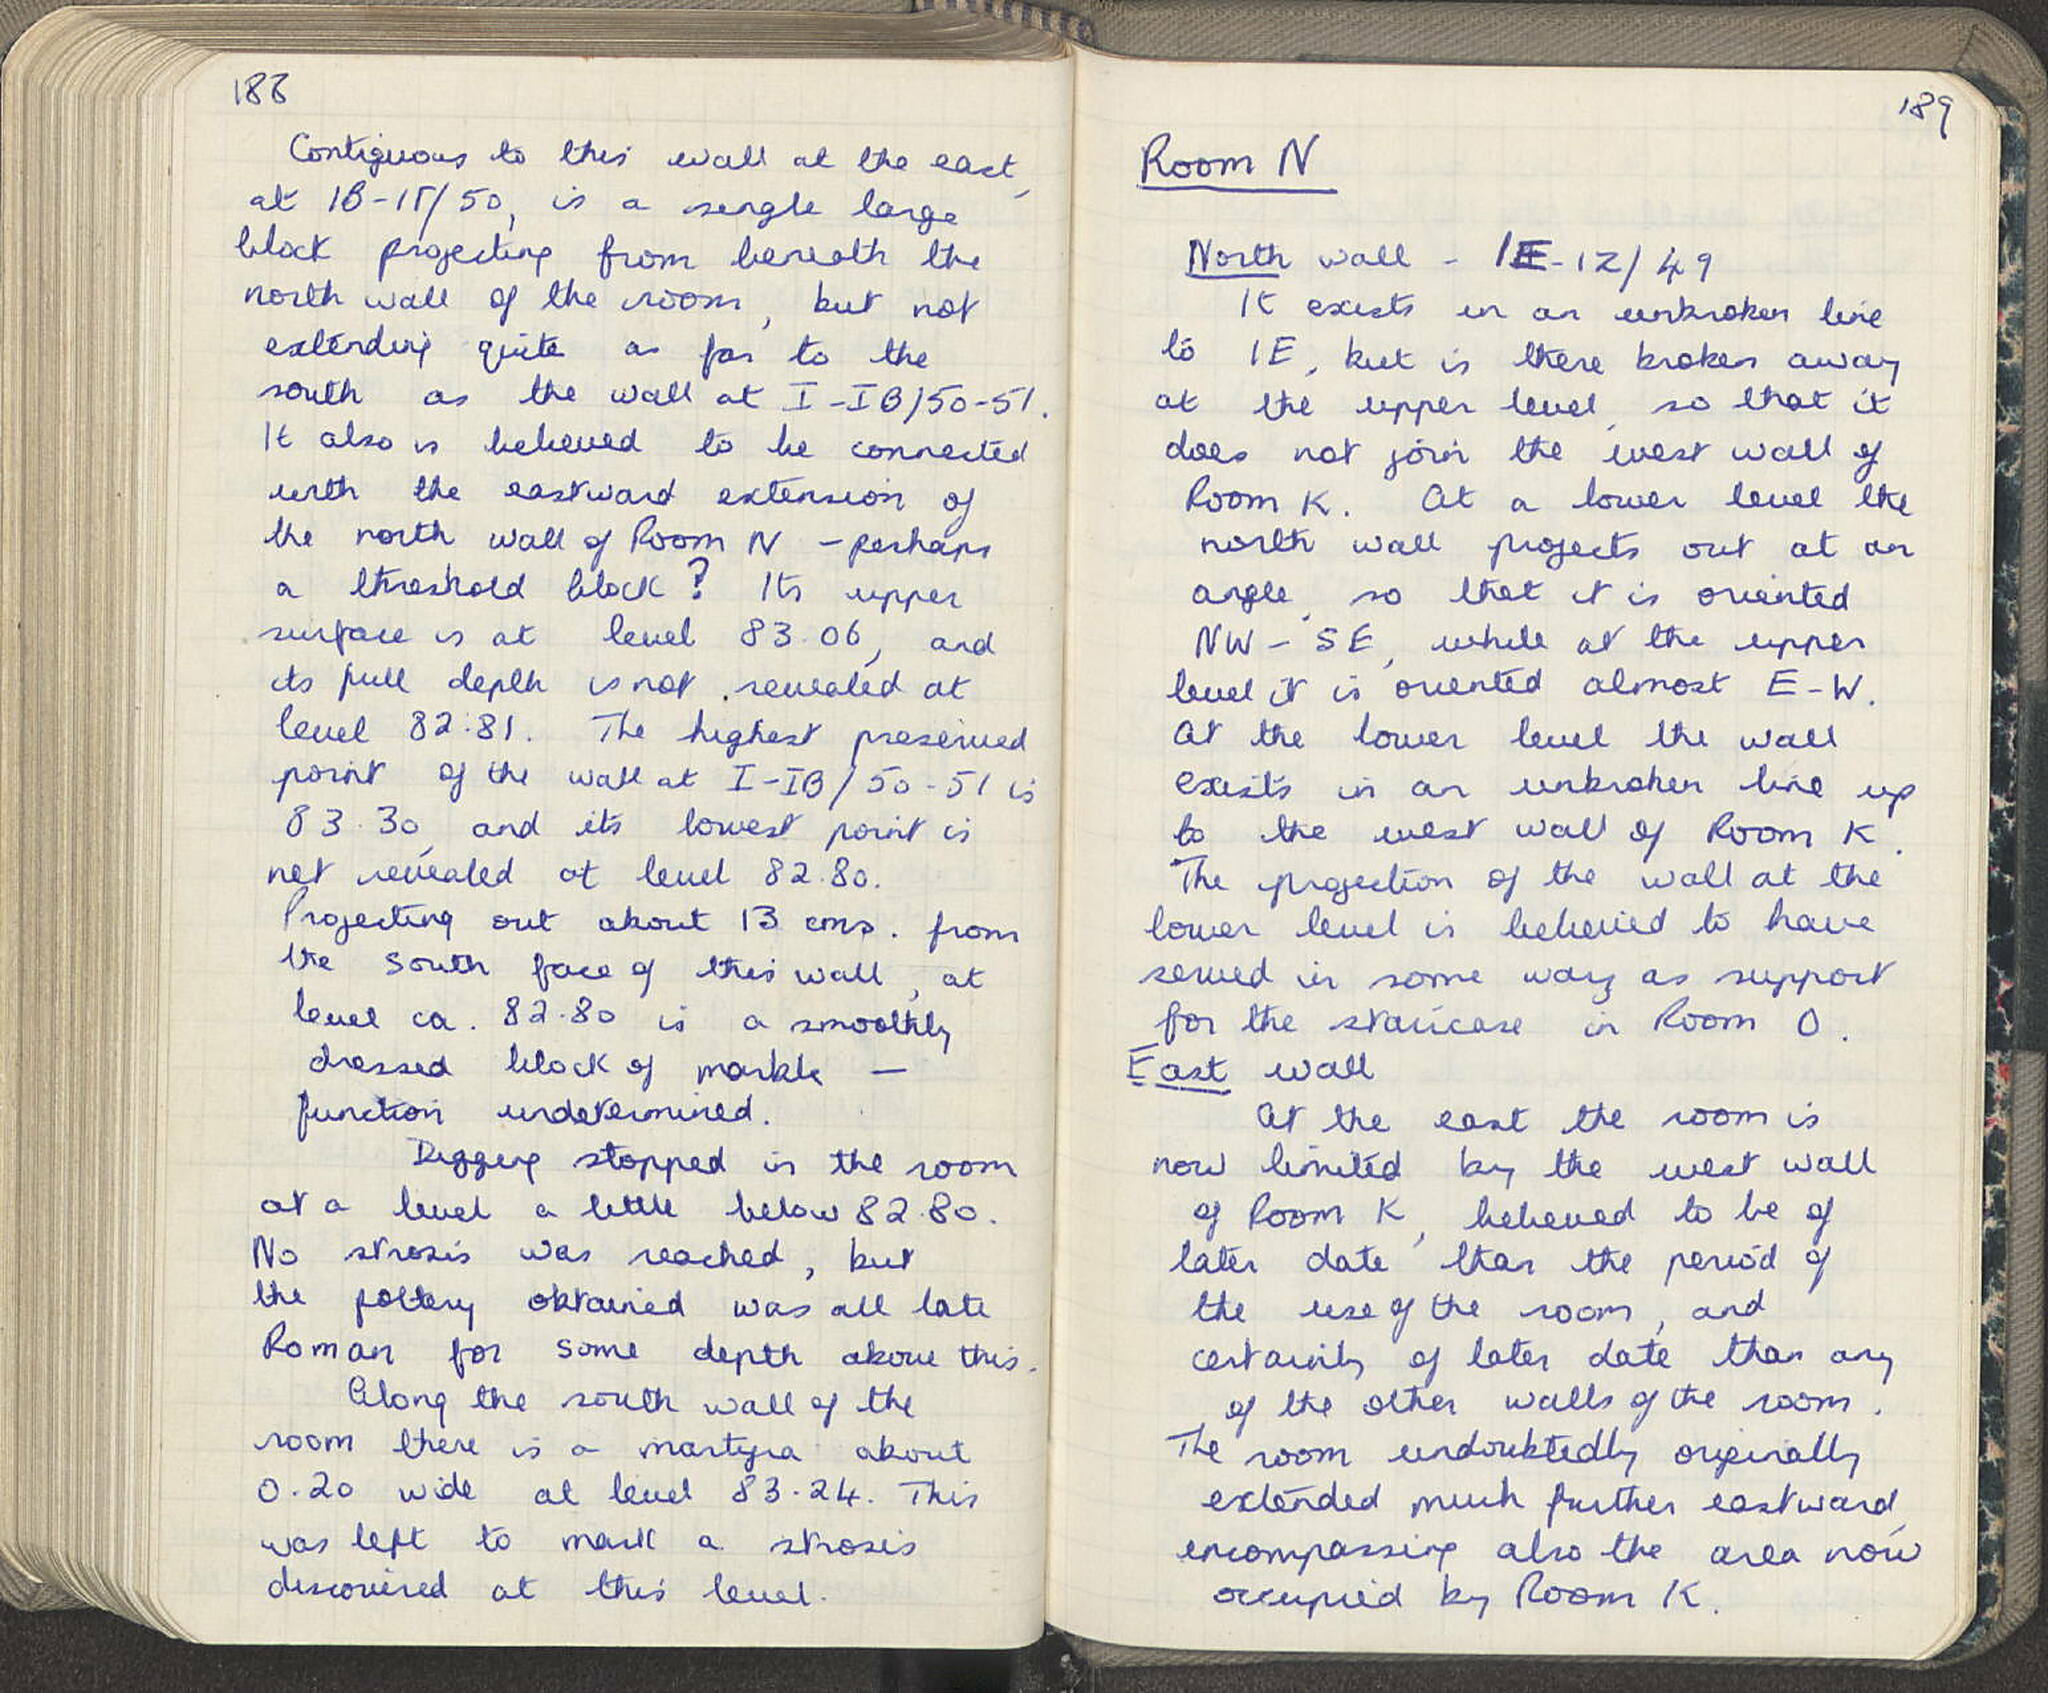 188
Contiguous to this wall at the east,
at IB-IΓ/50, is a single large
block projecting from beneath the
north wall of the room, but not
extending quite as far to the
south as the wall at I-IB/50-51.
It also is believed to be connected
with the eastward extension of
the north wall of Room N - perhaps
a threshold block? Its upper
surface is at level 83.06, and
its full depth is not revealed at
level 82.81. The highest preserved
point of the wall at I-IB/50-51 is
83.30, and its lowest point is
not revealed at level 82.80.
Projecting out about 13 cms. from
the south face of this wall, at
level ca. 82.80 is a smoothly
dressed block of marble —
function undetermined.
Digging stopped in the room
at a level a little below 82.80.
No strosis was reached, but
the pottery obtained was all late
Roman for some depth above this.
Along the south wall of the
room there is a martyra about
0.20 wide at level 83.24. This
was left to mark a strosis
discovered at this level.
189
Room N
North wall - IE-IZ/49
It exists in an unbroken line
to IE, but is there broken away
at the upper level, so that it
does not join the west wall of
Room K. At a lower level the
north wall projects out at an
angle, so that it is oriented
NW-SE, while at the upper
level it is oriented almost E-W.
At the lower level the wall
exists in an unbroken line up
to the west wall of Room K.
The projection of the wall at the
lower level is believed to have
served in some way as support
for the staircase in Room O.
East wall
At the east the room is
now limited by the west wall
of Room K, believed to be of
later date than the period of
the use of the room, and
certainly of later date than any
of the other walls of the room.
The room undoubtedly originally
extended much further eastward,
encompassing also the area now
occupied by Room K.